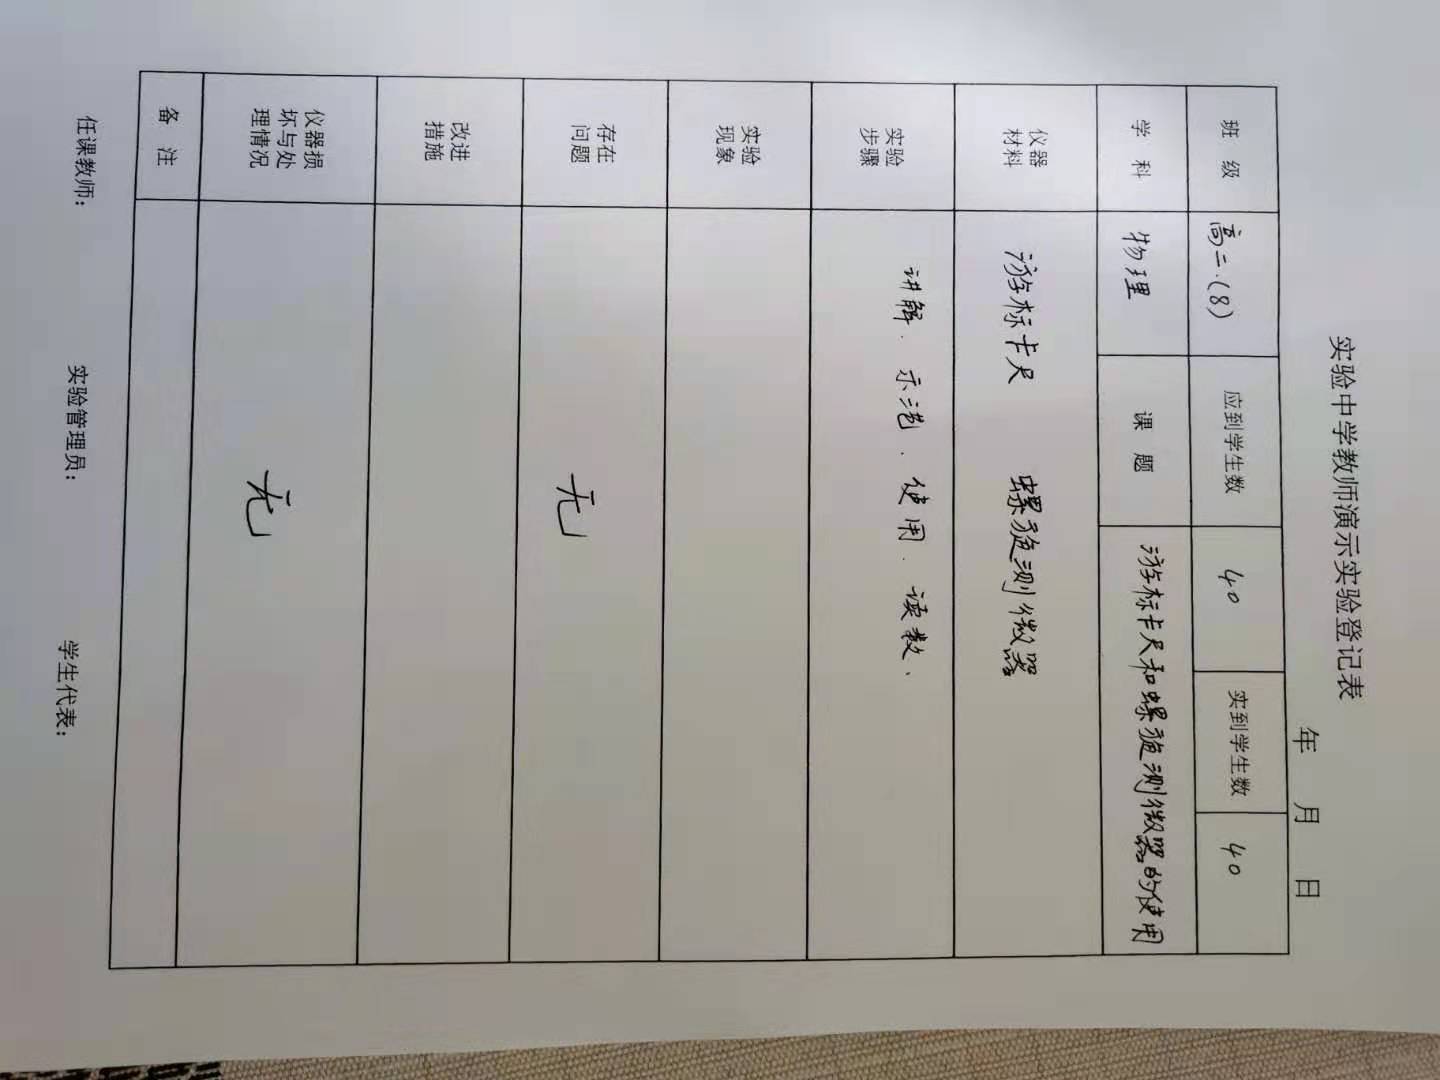 实验中学教师演示实验登记表
年 月 日
班 级 高二.(8) 应到学生数 40 实到学生数 40
学 科 物理 课 题 游标卡尺和螺旋测微器的使用
仪器
材料
游标卡尺 螺旋测微器
实验
步骤
讲解. 示范. 使用. 读数.
实验
现象
存在
问题
无
改进
措施
仪器损
坏与处
理情况
无
备 注
任课教师: 实验管理员: 学生代表: